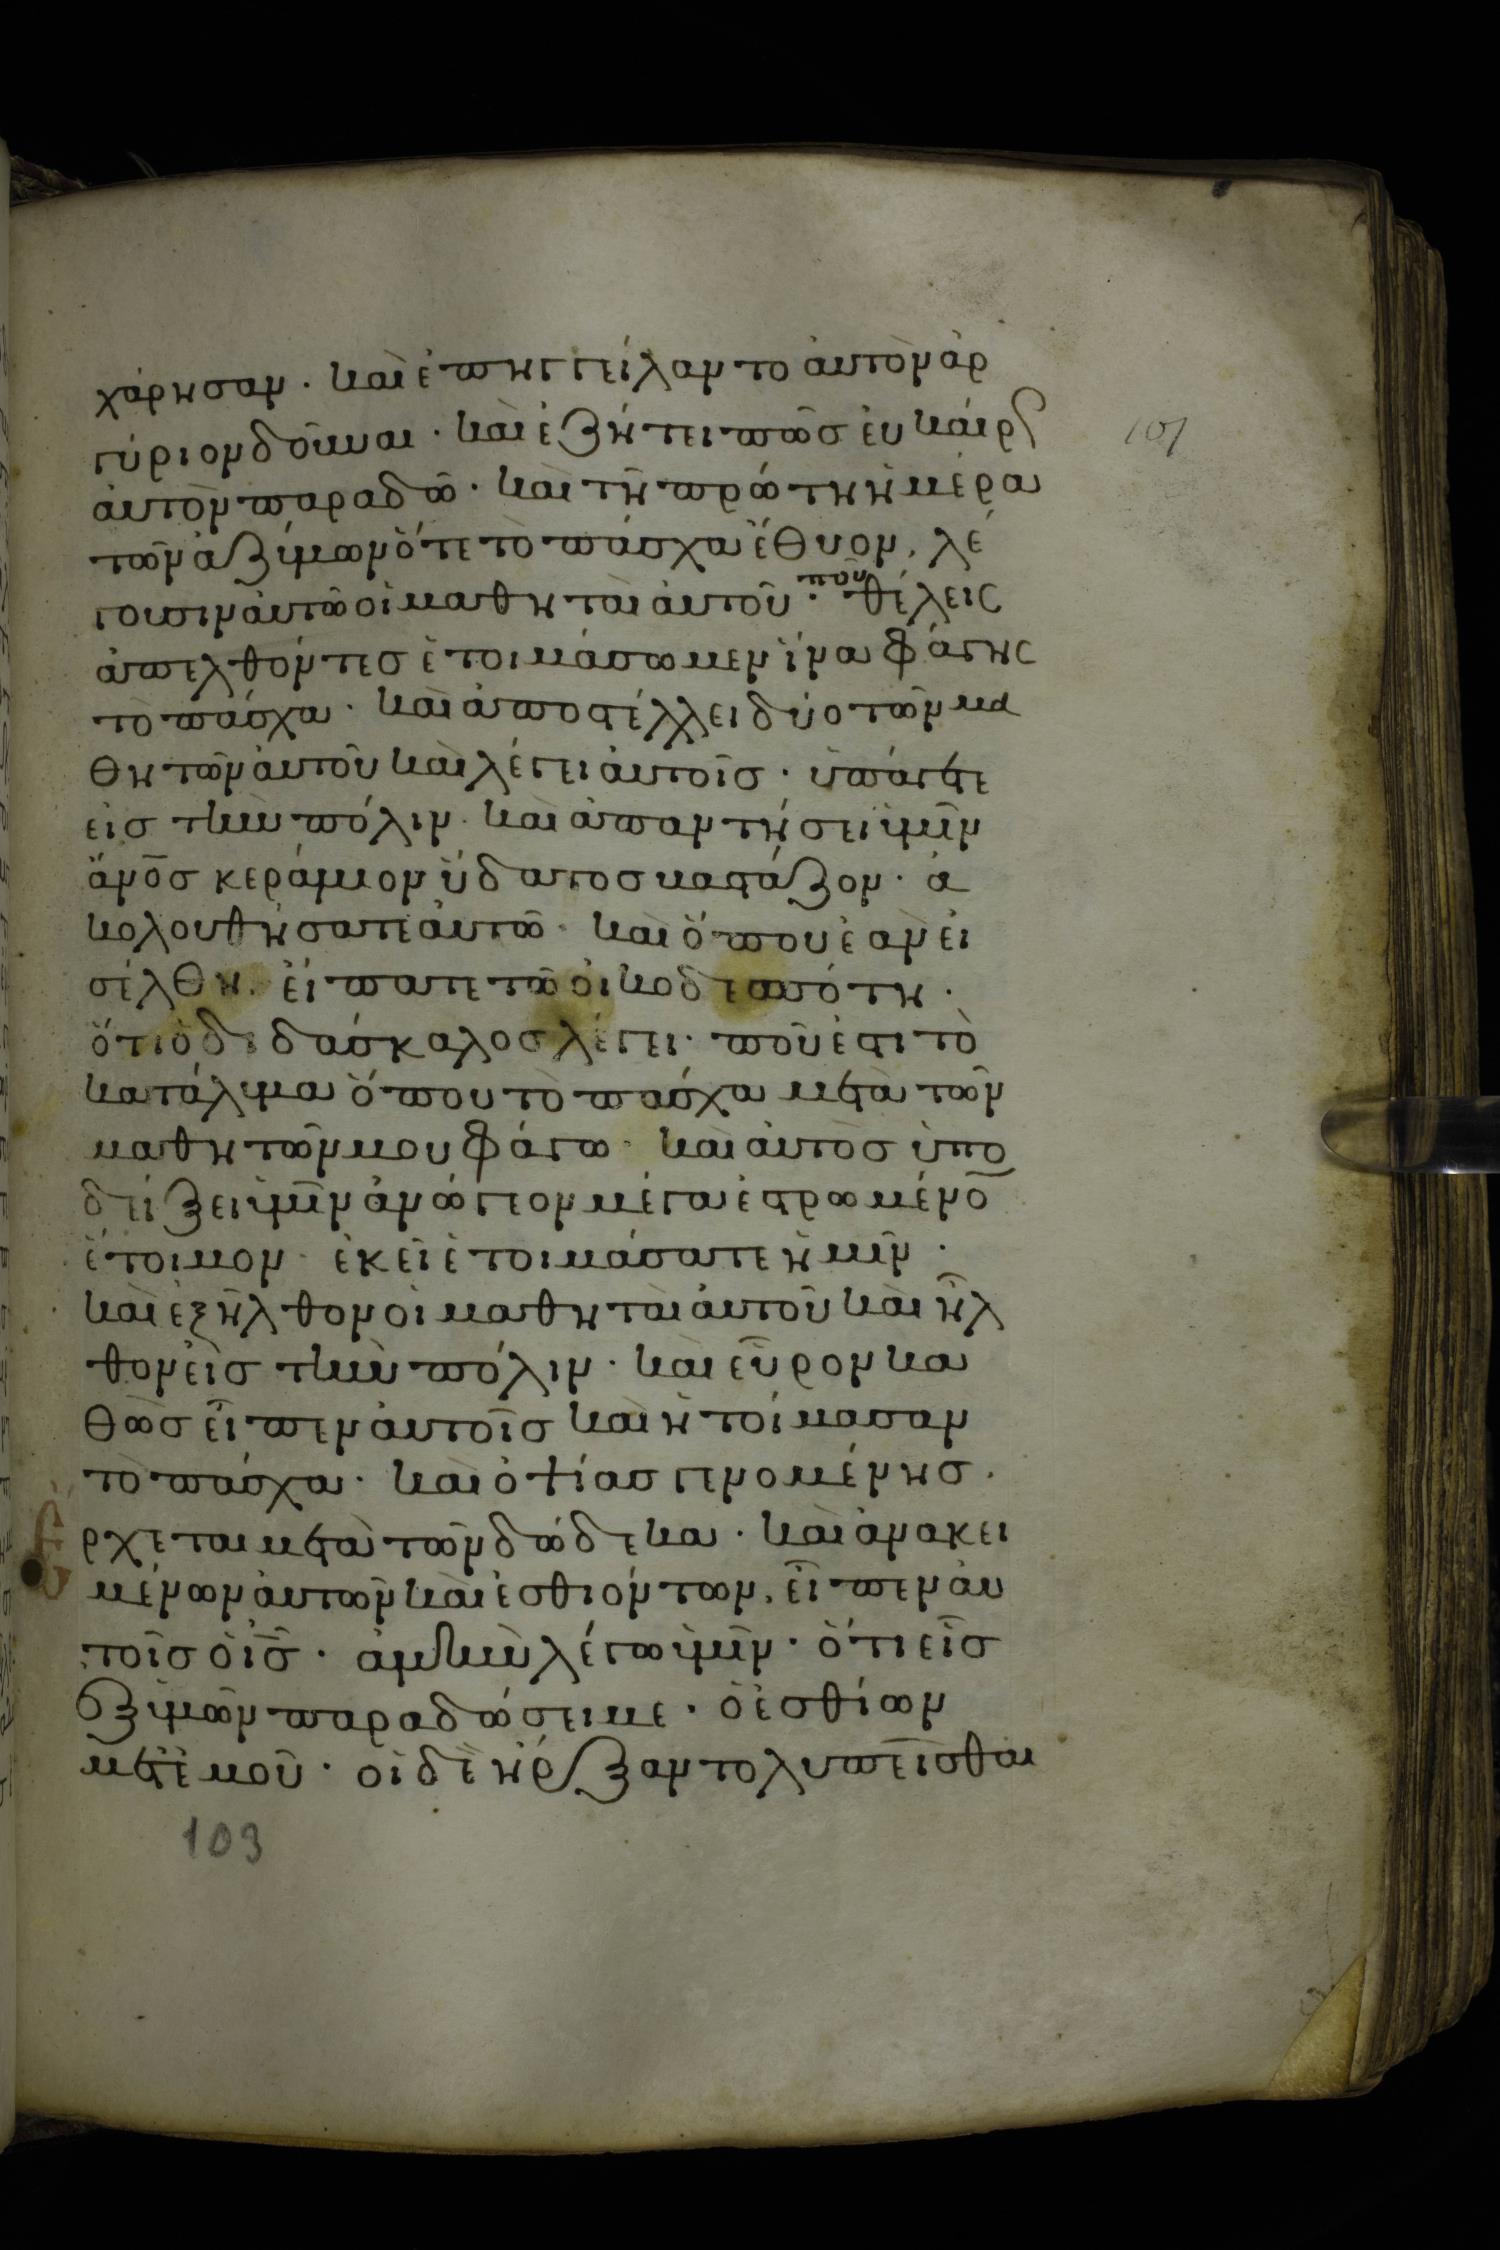 χάρησαν · καὶ ἐπηγγείλαντο αὐτὸν ἀρ
γύριον δοῦναι · καὶ ἐζήτει πῶς εὐκαίρ
αὐτὸν παραδῶ · καὶ τῆ πρώτη ἡμέρα
τῶν ἀζύμων ὅτε τὸ πάσχα ἔθυον, λέ
γουσιν αὐτῶ οἱ μαθηταὶ αὐτοῦ · ποῦ θέλεις
ἀπελθόντες ἑτοιμάσωμεν ἵνα φάγης
τὸ πάσχα · καὶ ἀποστέλλει δύο τῶν μα
θητῶν αὐτοῦ καὶ λέγει αὐτοῖς · ὑπάγετε
εἰς τὴν πόλιν · καὶ ἀπαντήσει ὑμῖν
ἄνο̅ς κεράμιον ὕδατος βαστάζον · ἀ
κολουθήσατε αὐτῶ · καὶ ὅπου ἐὰν εἰ
σέλθη · εἴπατε τῶ οἰκοδεσπότη ·
ὅτι ὁ διδάσκαλος λέγει · ποῦ ἐστι τὸ
κατάλυμα ὅπου τὸ πάσχα μετὰ τῶν
μαθητῶν μου φάγω · καὶ αὐτὸς ὑπο
δείξει ὑμῖν ἀνώγεον μέγα ἐστρωμένο̅
ἕτοιμον · ἐκεῖ ἑτοιμάσατε ἡμῖν ·
καὶ ἐξῆλθον οἱ μαθηταὶ αὐτοῦ καὶ ἦλ
θον εἰς τὴν πόλιν · καὶ εὗρον κα
θὼς εἶπεν αὐτοῖς καὶ ἡτοίμασαν
τὸ πάσχα · καὶ ὀψίας γενομένης ·
Ἔρχεται μετὰ τῶν δώδεκα · καὶ ἀνακει
μένων αὐτῶν καὶ ἐσθιόντων, εἶπεν αὐ
τοῖς ὁ ι̅ς̅ · ἀμὴν λέγω ὑμῖν · ὅτι εἷς
ἐξ ὑμῶν παραδώσει με · ὁ ἐσθίων
μετ' ἐμοῦ · οἱ δὲ ἤρξαντο λυπεῖσθαι
103
101